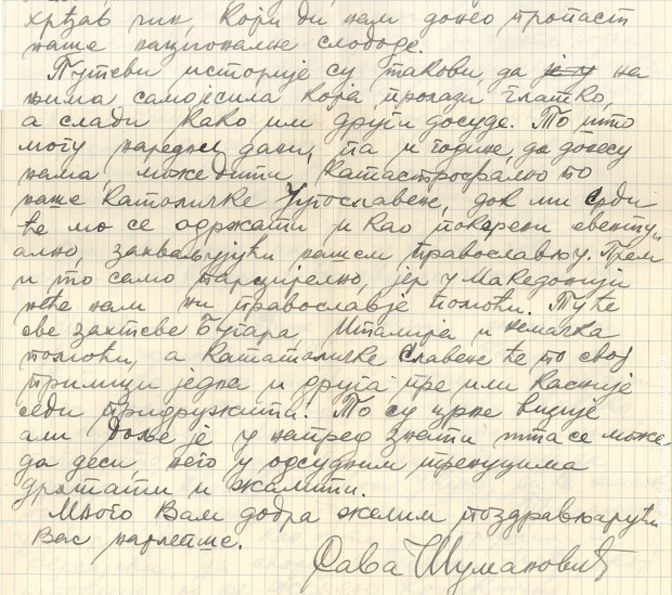 хрђав чин, који би нам донео пропаст
наше националне слободе.
Путеви историје су такови, да је у на
њима само сила која пролази глатко,
а слади како им други досуде. То, што
могу наредни дани, па и године, да донесу
нама, може бити, катастрофално по
наше католичке Југославене, док ми Срби
ће мо се одржати и као покорени евенту
ално, захваљујући нашем православљу. Прем
и то само парцијелно, јер у Македонији
неће нам ни православје помоћи. Ту ће
све захтеве Бугара, Италија и Немачка
помоћи, а Кататоличке Славене ће по свој
прилици једна и друга пре или касније
себи придружити. То су црне визије
али боље је у напред знати шта се може
да деси, него у одсудним тренуцима
дрхтати и жалити.
Много Вам добра желим поздрављајући
Вас најлепше.
Сава Шумановић